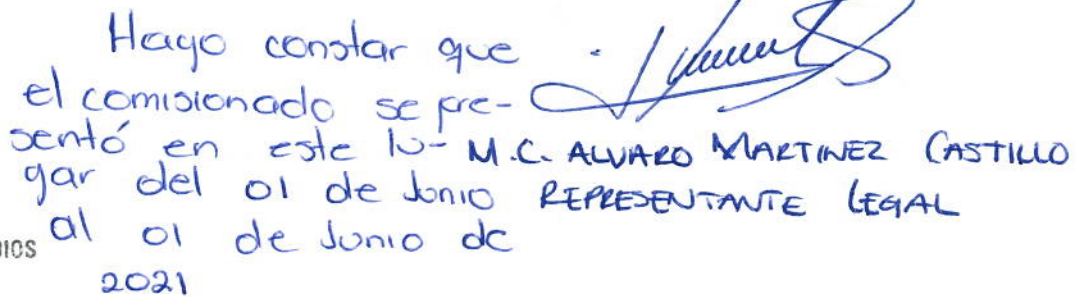 Hago constar que
el comisionado se pre-
sentó en este lu-
gar del 01 de Junio
al 01 de Junio de
2021
M.C. ALVARO MARTINEZ CASTILLO
REPRESENTANTE LEGAL